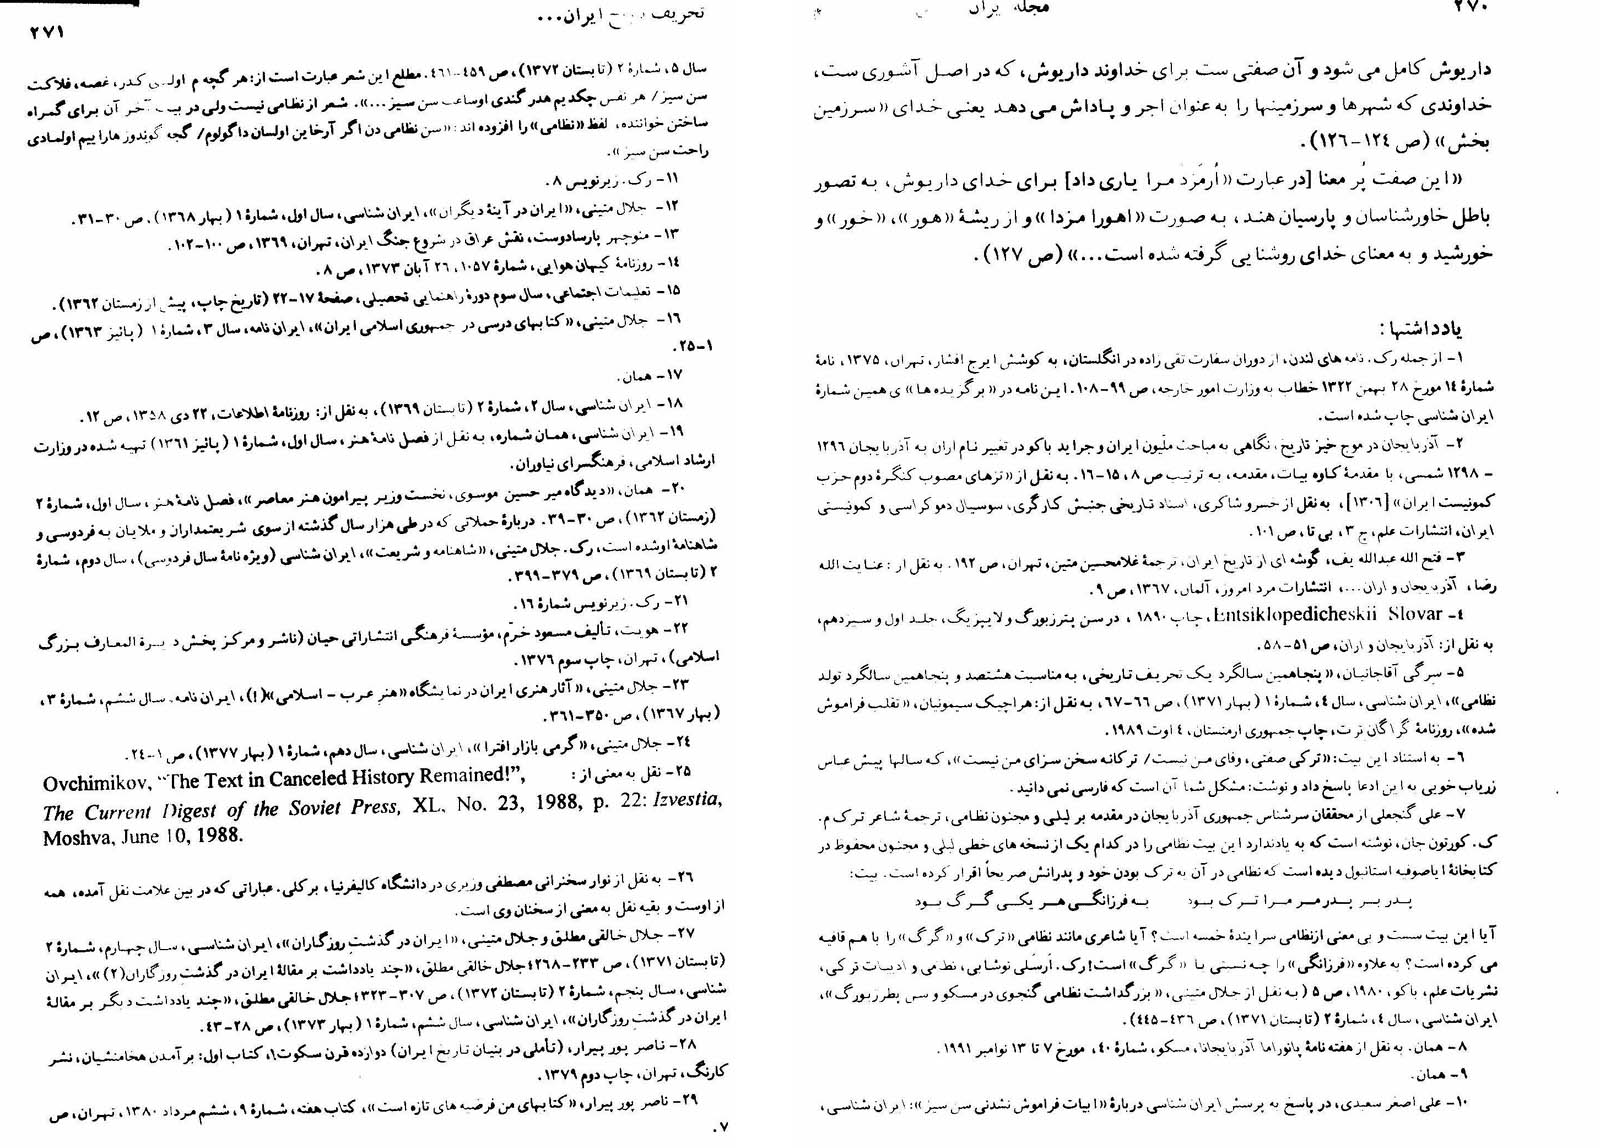 ۲۷۰
مجله ایران
داریوش کامل می شود و آن صفتی ست برای خداوند داریوش، که در اصل آشوری ست،
خداوندی که شهرها و سرزمینها را به عنوان اجر و پاداش می دهد یعنی خدای «سرزمین
بخش» (ص ۱۲۴-۱۲۶).
«این صفت پُر معنا [در عبارت «اُرمَزدْ مرا یاری داد] برای خدای داریوش، به تصور
باطل خاورشناسان و پارسیان هند، به صورت «اهورا مزدا» و از ریشهٔ «هور»، «خور» و
خورشید و به معنای خدای روشنایی گرفته شده است...» (ص ۱۲۷).
یادداشتها:
۱- از جمله رک. نامه های لندن، از دوران سفارت تقی زاده در انگلستان، به کوشش ایرج افشار، تهران، ۱۳۷۵، نامهٔ
شمارهٔ ۱۴ مورخ ۲۸ بهمن ۱۳۲۲ خطاب به وزارت امور خارجه، ص ۹۹-۱۰۸. این نامه در «برگزیده ها» ی همین شمارهٔ
ایران شناسی چاپ شده است.
۲- آذربایجان در موج خیز تاریخ، نگاهی به مباحث ملّیون ایران و جراید باکو در تغییر نام اران به آذربایجان ۱۲۹۶
- ۱۲۹۸ شمسی، با مقدمهٔ کاوه بیات، مقدمه، به ترتیب ص ۸، ۱۵-۱۶. به نقل از «تزهای مصوب کنگرهٔ دوم حزب
کمونیست ایران» [۱۳۰۶]، به نقل از خسرو شاکری، اسناد تاریخی جنبش کارگری، سوسیال دموکراسی و کمونیستی
ایران، انتشارات علم، ج ۳، بی تا، ص ۱۰۱.
۳- فتح الله عبدالله یف، گوشه ای از تاریخ ایران، ترجمهٔ غلامحسین متین، تهران، ص ۱۹۲. به نقل از: عنایت الله
رضا، آذربایجان و اران...، انتشارات مرد امروز، آلمان، ۱۳۶۷، ص ۹.
۴- Entsiklopedicheskii Slovar، چاپ ۱۸۹۰، در سن پترزبورگ و لایپزیگ، جلد اول و سیزدهم،
به نقل از: آذربایجان و اران، ص ۵۱-۵۸.
۵- سرگی آقاجانیان، «پنجاهمین سالگرد یک تحریف تاریخی، به مناسبت هشتصد و پنجاهمین سالگرد تولد
نظامی»، ایران شناسی، سال ۴، شمارهٔ ۱ (بهار ۱۳۷۱)، ص ۶۶-۶۷، به نقل از: هراچیک سیمونیان، «تقلب فراموش
شده»، روزنامهٔ گراگان ترت، چاپ جمهوری ارمنستان، ۴ اوت ۱۹۸۹.
۶- به استناد این بیت: «ترکی صفتی، وفای من نیست/ ترکانه سخن سزای من نیست»، که سالها پیش عباس
زریاب خویی به این ادعا پاسخ داد و نوشت: مشکل شما آن است که فارسی نمی دانید.
۷- علی گنجعلی از محققان سرشناس جمهوری آذربایجان در مقدمه بر لیلی و مجنون نظامی، ترجمهٔ شاعر ترک م.
ک. کورتون جان، نوشته است که به یاد ندارد این بیت نظامی را در کدام یک از نسخه های خطی لیلی و مجنون محفوظ در
کتابخانهٔ ایاصوفیه استانبول دیده است که نظامی در آن به ترک بودن خود و پدرانش صریحاً اقرار کرده است. بیت:
پدر بر پدر مر مرا ترک بود به فرزانگی هر یکی گرگ بود
آیا این بیت سست و بی معنی از نظامی سرایندهٔ خمسه است؟ آیا شاعری مانند نظامی «ترک» و «گرگ» را با هم قافیه
می کرده است؟ به علاوه «فرزانگی» را چه نسبتی با «گرگ» است! رک. اَرسَلی نوشابی، نظامی و ادبیات ترکی،
نشریات علم، باکو، ۱۹۸۰، ص ۵ (به نقل از جلال متینی، «بزرگداشت نظامی گنجوی در مسکو و سن پطرزبورگ»،
ایران شناسی، سال ۴، شمارهٔ ۲ (تابستان ۱۳۷۱)، ص ۴۳۶-۴۴۵).
۸- همان. به نقل از هفته نامهٔ پانوراما آذربایجانا، مسکو، شمارهٔ ۴۰، مورخ ۷ تا ۱۳ نوامبر ۱۹۹۱.
۹- همان.
۱۰- علی اصغر سعیدی، در پاسخ به پرسش ایران شناسی دربارهٔ «ابیات فراموش نشدنی سن سیز»: ایران شناسی،
تحریف تاریخ ایران...
۲۷۱
سال ۵، شمارهٔ ۲ (تابستان ۱۳۷۲)، ص ۴۵۹-۴۶۱. مطلع این شعر عبارت است از: هر گچه م اولدی کدر، غصه، فلاکت
سن سیز/ هر نفس چکدیم هدر گندی او ساعت سن سیز...». شعر از نظامی نیست ولی در بیت آخر آن برای گمراه
ساختن خواننده، لفظ «نظامی» را افزوده اند: «سن نظامی دن اگر آرخاین اولسان دا گولوم/ گجه گوندوز هاراییم اولمادی
راحت سن سیز».
۱۱- رک. زیرنویس ۸.
۱۲- جلال متینی، «ایران در آینهٔ دیگران»، ایران شناسی، سال اول، شمارهٔ ۱ (بهار ۱۳۶۸)، ص ۳۰-۳۱.
۱۳- منوچهر پارسادوست، نقش عراق در شروع جنگ ایران، تهران، ۱۳۶۹، ص ۱۰۰-۱۰۲.
۱۴- روزنامهٔ کیهان هوایی، شمارهٔ ۱۰۵۷، ۲۶ آبان ۱۳۷۳، ص ۸.
۱۵- تعلیمات اجتماعی، سال سوم دورهٔ راهنمایی تحصیلی، صفحهٔ ۱۷-۲۲ (تاریخ چاپ، پیش از زمستان ۱۳۶۲).
۱۶- جلال متینی، «کتابهای درسی در جمهوری اسلامی ایران»، ایران نامه، سال ۳، شمارهٔ ۱ (پائیز ۱۳۶۳)، ص
۱-۲۵.
۱۷- همان.
۱۸- ایران شناسی، سال ۲، شمارهٔ ۲ (تابستان ۱۳۶۹)، به نقل از: روزنامهٔ اطلاعات، ۲۲ دی ۱۳۵۸، ص ۱۲.
۱۹- ایران شناسی، همان شماره، به نقل از فصل نامهٔ هنر، سال اول، شمارهٔ ۱ (پائیز ۱۳۶۱) تهیه شده در وزارت
ارشاد اسلامی، فرهنگسرای نیاوران.
۲۰- همان، «دیدگاه میر حسین موسوی، نخست وزیر پیرامون هنر معاصر»، فصل نامهٔ هنر، سال اول، شمارهٔ ۲
(زمستان ۱۳۶۲)، ص ۳۰-۳۹. دربارهٔ حملاتی که در طی هزار سال گذشته از سوی شریعتمداران و ملایان به فردوسی و
شاهنامهٔ او شده است، رک. جلال متینی، «شاهنامه و شریعت»، ایران شناسی (ویژه نامهٔ سال فردوسی)، سال دوم، شمارهٔ
۲ (تابستان ۱۳۶۹)، ص ۳۷۹-۳۹۹.
۲۱- رک. زیرنویس شمارهٔ ۱۶.
۲۲- هویت، تألیف مسعود خرّم، مؤسسهٔ فرهنگی انتشاراتی حیان (ناشر و مرکز پخش دایرة المعارف بزرگ
اسلامی)، تهران، چاپ سوم ۱۳۷۶.
۲۳- جلال متینی، «آثار هنری ایران در نمایشگاه «هنر عرب - اسلامی»(!)، ایران نامه، سال ششم، شمارهٔ ۳،
(بهار ۱۳۶۷)، ص ۳۵۰-۳۶۱.
۲۴- جلال متینی، «گرمی بازار افترا»، ایران شناسی، سال دهم، شمارهٔ ۱ (بهار ۱۳۷۷)، ص ۱-۲۴.
۲۵- نقل به معنی از : Ovchimikov, "The Text in Canceled History Remained!",
The Current Digest of the Soviet Press, XL, No. 23, 1988, p. 22: Izvestia,
Moshva, June 10, 1988.
۲۶- به نقل از نوار سخنرانی مصطفی وزیری در دانشگاه کالیفرنیا، برکلی. عباراتی که در بین علامت نقل آمده، همه
از اوست و بقیه نقل به معنی از سخنان وی است.
۲۷- جلال خالقی مطلق و جلال متینی، «ایران در گذشتِ روزگاران»، ایران شناسی، سال چهارم، شمارهٔ ۲
(تابستان ۱۳۷۱)، ص ۲۳۳-۲۶۸؛ جلال خالقی مطلق، «چند یادداشت بر مقالهٔ ایران در گذشتِ روزگاران(۲)»، ایران
شناسی، سال پنجم، شمارهٔ ۲ (تابستان ۱۳۷۲)، ص ۳۰۷-۳۲۳؛ جلال خالقی مطلق، «چند یادداشت دیگر بر مقالهٔ
ایران در گذشتِ روزگاران»، ایران شناسی، سال ششم، شمارهٔ ۱ (بهار ۱۳۷۳)، ص ۲۸-۴۳.
۲۸- ناصر پور پیرار، (تأملی در بنیان تاریخ ایران) دوازده قرن سکوت!، کتاب اول: برآمدن هخامنشیان، نشر
کارنگ، تهران، چاپ دوم ۱۳۷۹.
۲۹- ناصر پور پیرار، «کتابهای من فرضیه های تازه است»، کتاب هفته، شمارهٔ ۹، ششم مرداد ۱۳۸۰، تهران، ص
۷.